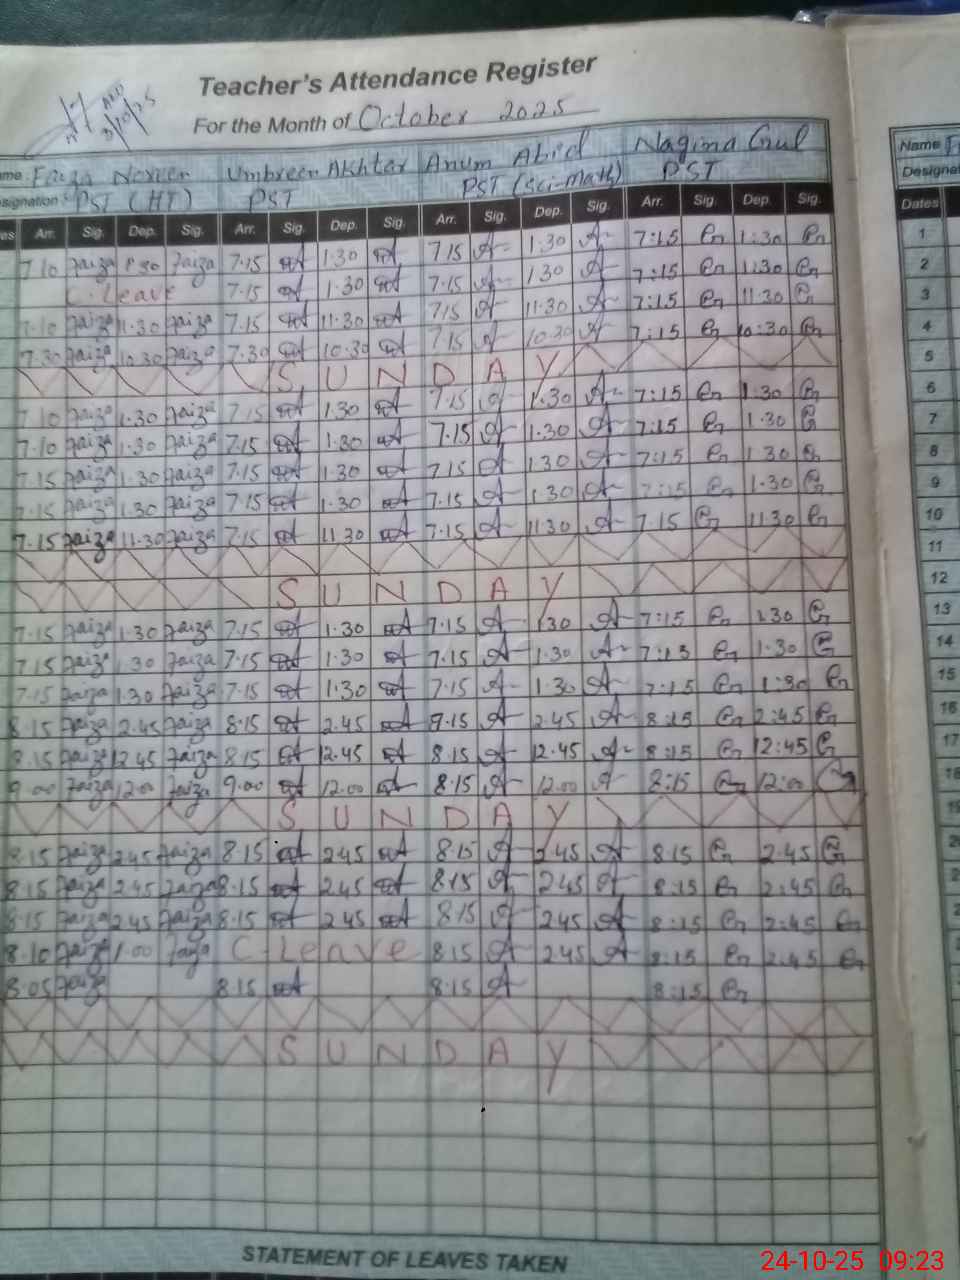 Teacher's Attendance Register
AEO
3/10/25
For the Month of October 2025
Faiza Noreen Umbreen Akhtar Anum Abid Nagina Gul
PST (HT) PST PST (Sci-math) PST
Arr. Sig. Dep. Sig. Arr. Sig. Dep. Sig. Arr. Sig. Dep. Sig. Arr. Sig. Dep. Sig.
7.10 Faiza 1.30 Faiza 7.15 1.30 7.15 A 1.30 A 7:15 1:30
C. Leave 7.15 1.30 7.15 A 1.30 A 7:15 1:30
7.10 Faiza 11.30 Faiza 7.15 11.30 7.15 A 11.30 A 7:15 11:30
7.30 Faiza 10.30 Faiza 7.30 10.30 7.15 A 10.30 A 7:15 10:30
S U N D A Y
7.10 Faiza 1.30 Faiza 7.15 1.30 7.15 1.30 A 7:15 1:30
7.10 Faiza 1.30 Faiza 7.15 1.30 7.15 A 1.30 A 7:15 1.30
7.15 Faiza 1.30 Faiza 7.15 1.30 7.15 A 1.30 A 7:15 1.30
7.15 Faiza 1.30 Faiza 7.15 1.30 7.15 A 1.30 A 7:15 1.30
7.15 Faiza 11.30 Faiza 7.15 11.30 7.15 A 11.30 A 7.15 11.30
S U N D A Y
7.15 Faiza 1.30 Faiza 7.15 1.30 7.15 A 1.30 A 7:15 1.30
7.15 Faiza 1.30 Faiza 7.15 1.30 7.15 A 1.30 A 7:15 1.30
7.15 Faiza 1.30 Faiza 7.15 1.30 7.15 A 1.30 A 7:15 1:30
8.15 Faiza 2.45 Faiza 8.15 2.45 8.15 A 2.45 A 8:15 2:45
8.15 Faiza 12.45 Faiza 8.15 12.45 8.15 A 12.45 A 8:15 12:45
9.00 Faiza 12.00 Faiza 9.00 12.00 8.15 A 12.00 A 8:15 12:00
S U N D A Y
8.15 Faiza 2.45 Faiza 8.15 2.45 8.15 A 2.45 A 8:15 2.45
8.15 Faiza 2.45 Faiza 8.15 2.45 8.15 A 2.45 A 8:15 2:45
8.15 Faiza 2.45 Faiza 8.15 2.45 8.15 A 2.45 A 8:15 2:45
8.10 Faiza 1.00 Faiza C. Leave 8.15 A 2.45 A 8:15 2:45
8.05 Faiza 8.15 8.15 A 8:15
S U N D A Y
STATEMENT OF LEAVES TAKEN
Name
Dates
1
2
3
4
5
6
7
8
9
10
11
12
13
14
15
16
17
18
24-10-25 09:23